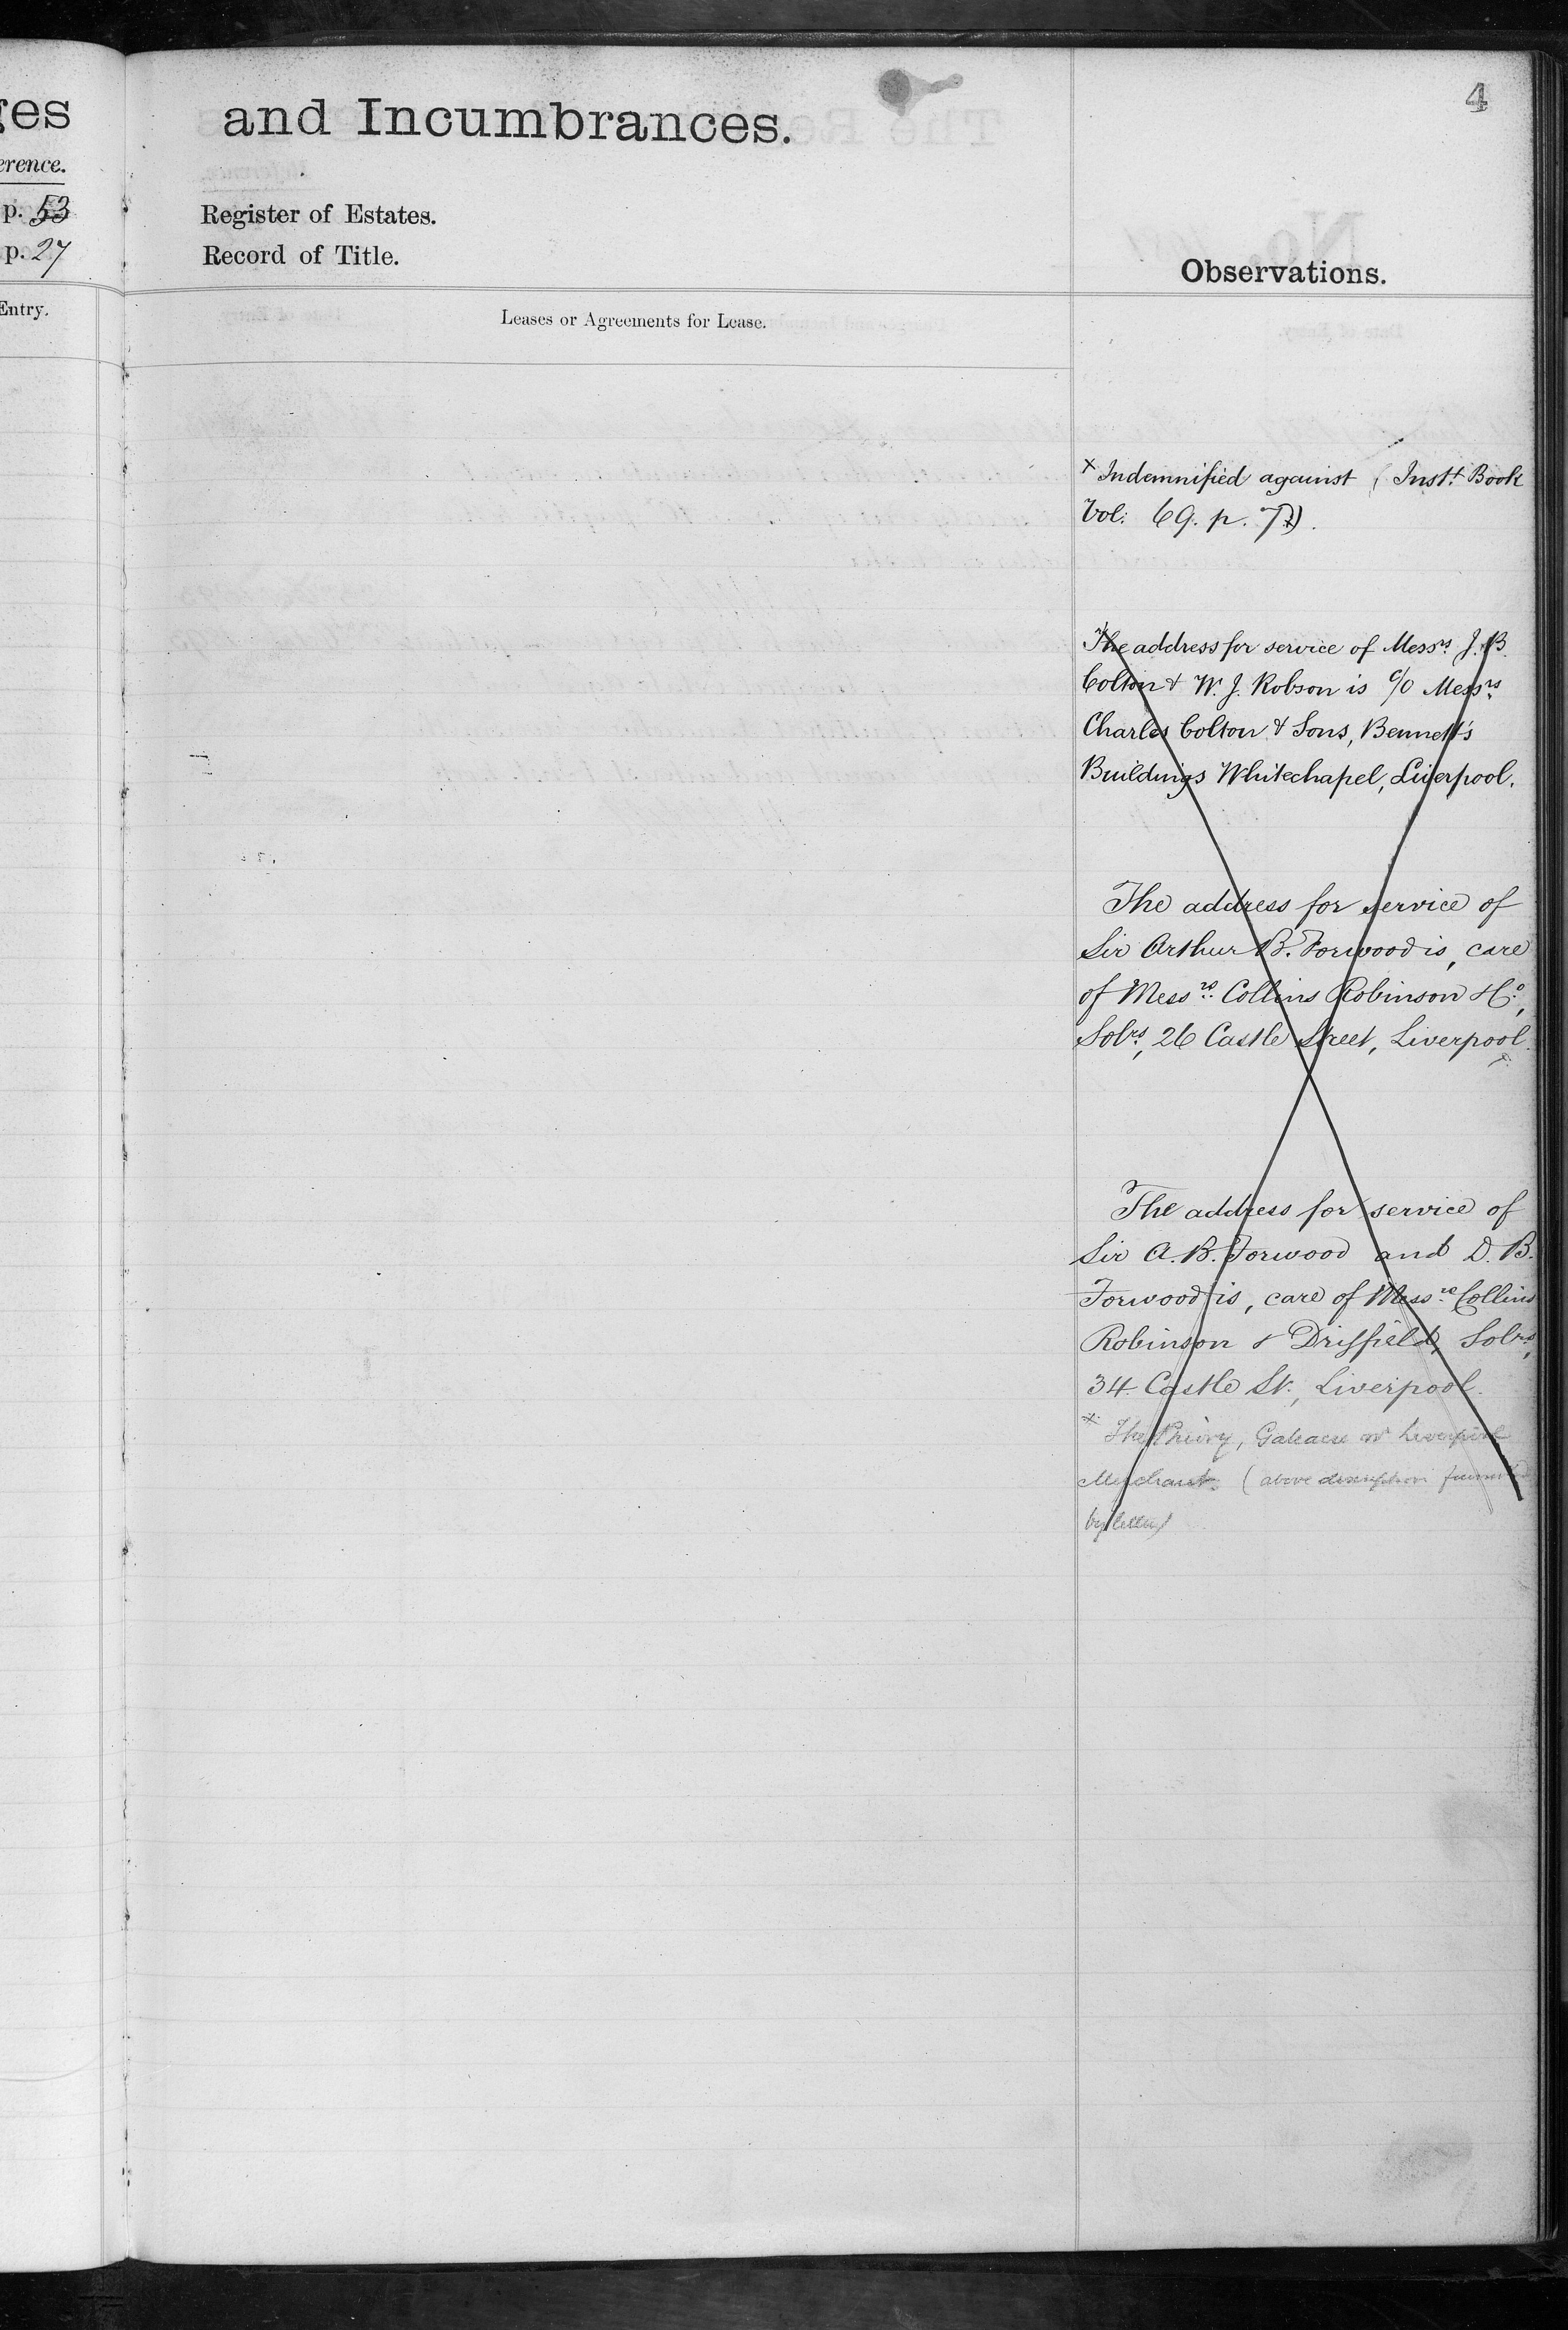 ges
and Incumbrances.
4
erence.
p. 53
Register of Estates.
p. 27
Record of Title.
Observations.
Entry.
Leases or Agreements for Lease.
x Indemnified against (Inst.t Book
Vol: 69. p.
The address for service of Messrs J. B.
Colton & W. J. Robson is c/o Messrs
Charles Colton & Sons, Bennett's
Buildings Whitechapel, Liverpool.
The address for service of
Sir Arthur B. Forwood is, care
of Messrs. Collins Robinson & Co.,
Solrs, 26 Castle Street, Liverpool.
x
The address for service of
Sir A. B. Forwood and D. B.
Forwood is, care of Messrs. Collins
Robinson & Driffield, Solrs,
34 Castle St., Liverpool.
x The Priory, Gateacre nr Liverpool
Merchant. (above description
by letter)